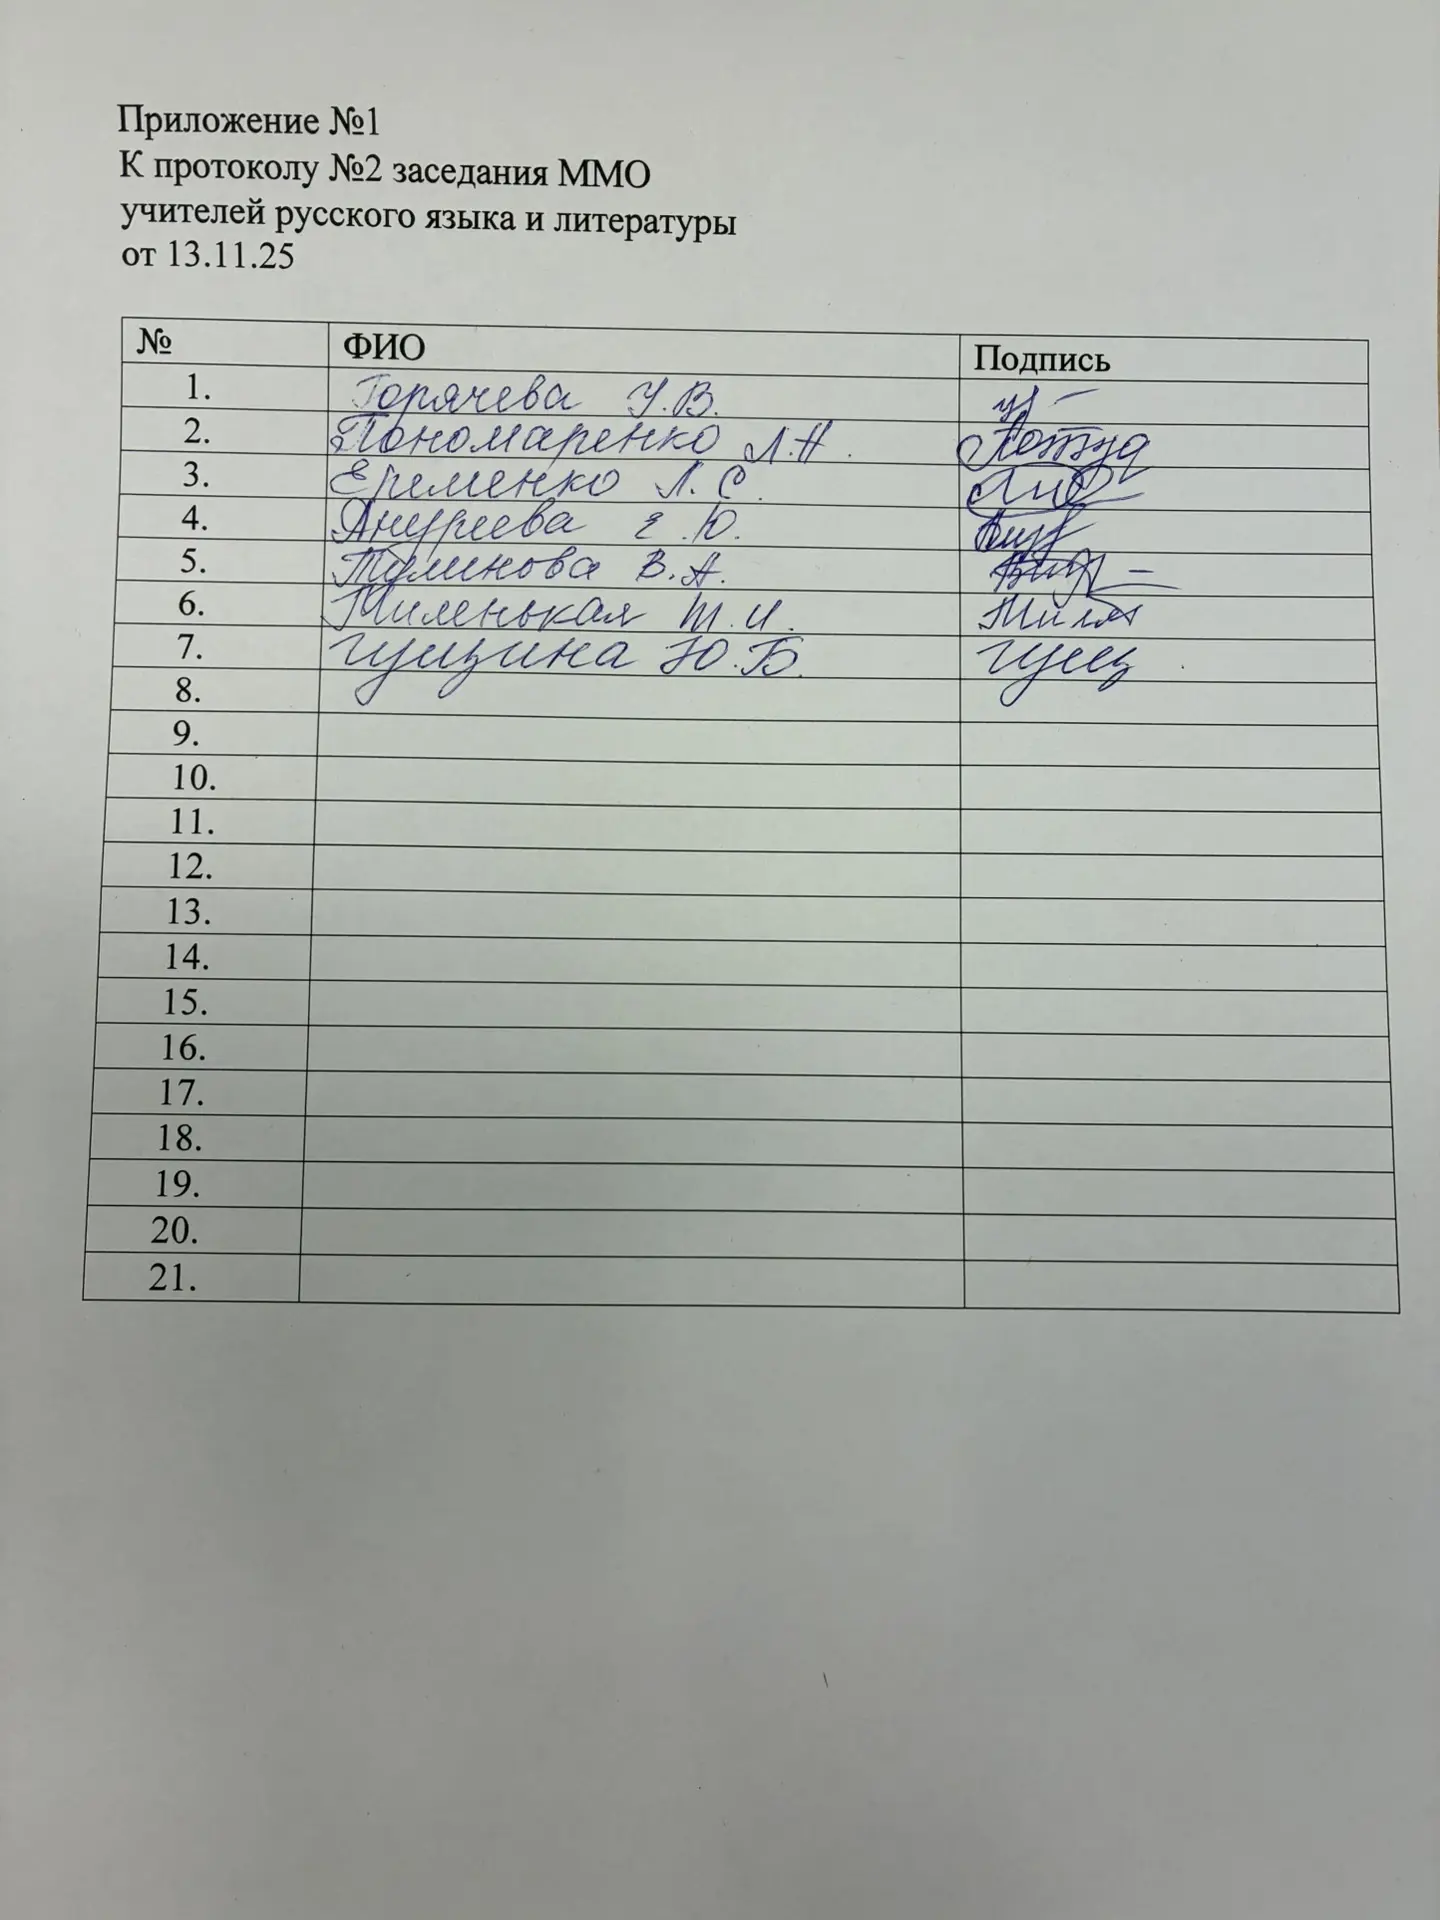 Приложение №1
К протоколу №2 заседания ММО
учителей русского языка и литературы
от 13.11.25
№ ФИО Подпись
1. Горячева У.В.
2. Пономаренко Л.Н.
3. Еременко Л.С.
4. Андреева Е.Ю.
5. В.А.
6. Миленькая Т.И.
7. Гущина Ю.Б. Гущ
8.
9.
10.
11.
12.
13.
14.
15.
16.
17.
18.
19.
20.
21.